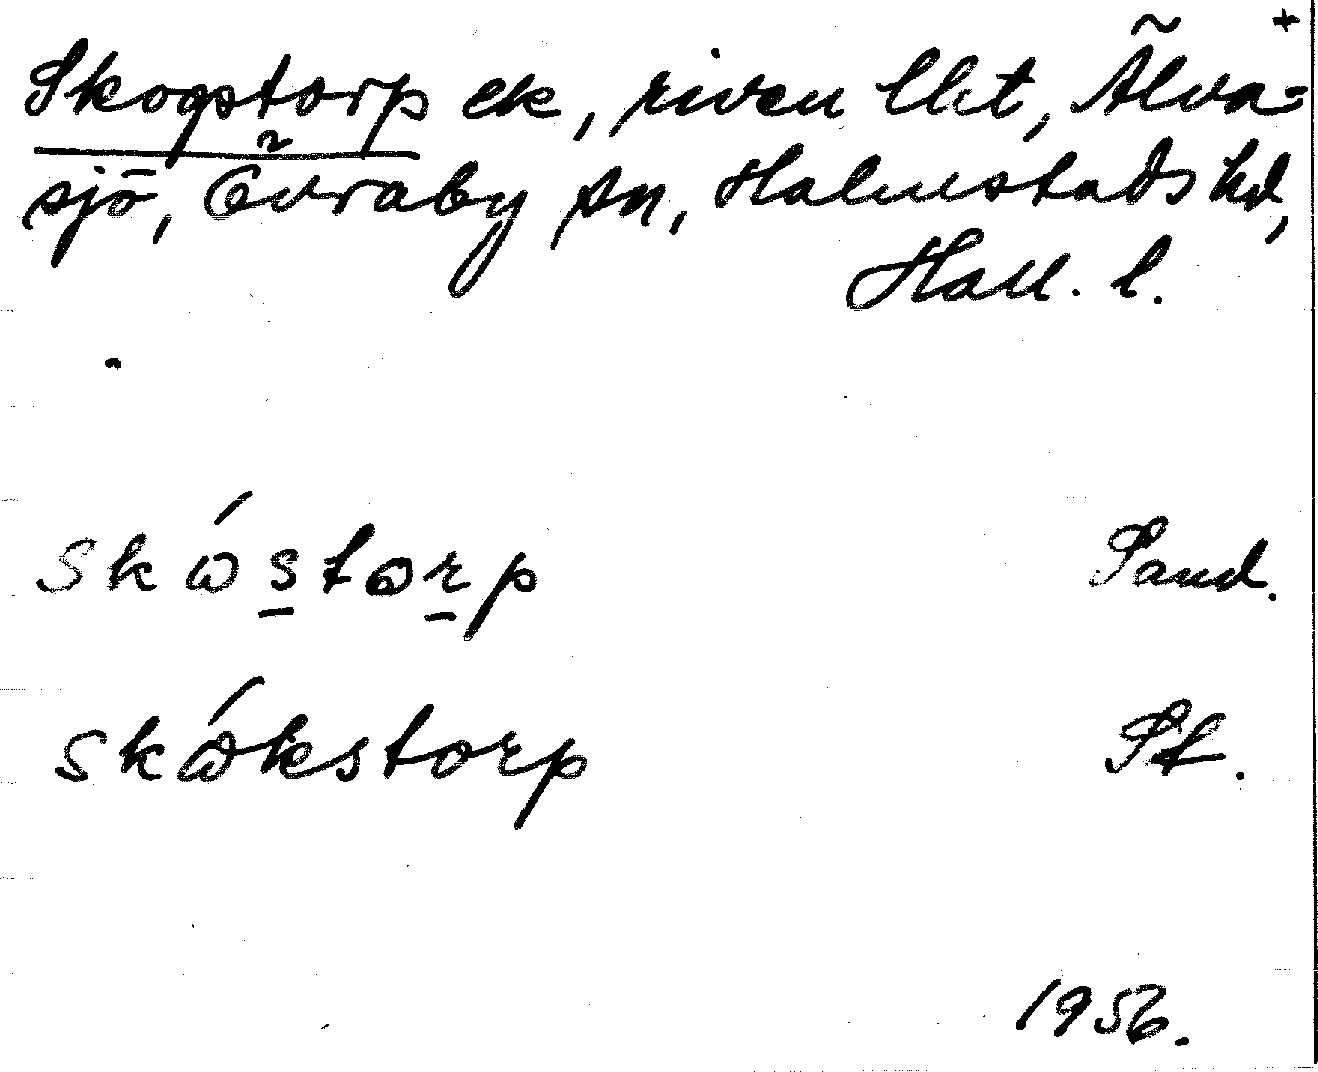 +
Skogstorp ek, riven lht, Älva=
sjö, Övraby sn, Halmstads hd,
Hall. l.
skɷ́storp Sand.
skɷ́kstorp St.
1956.